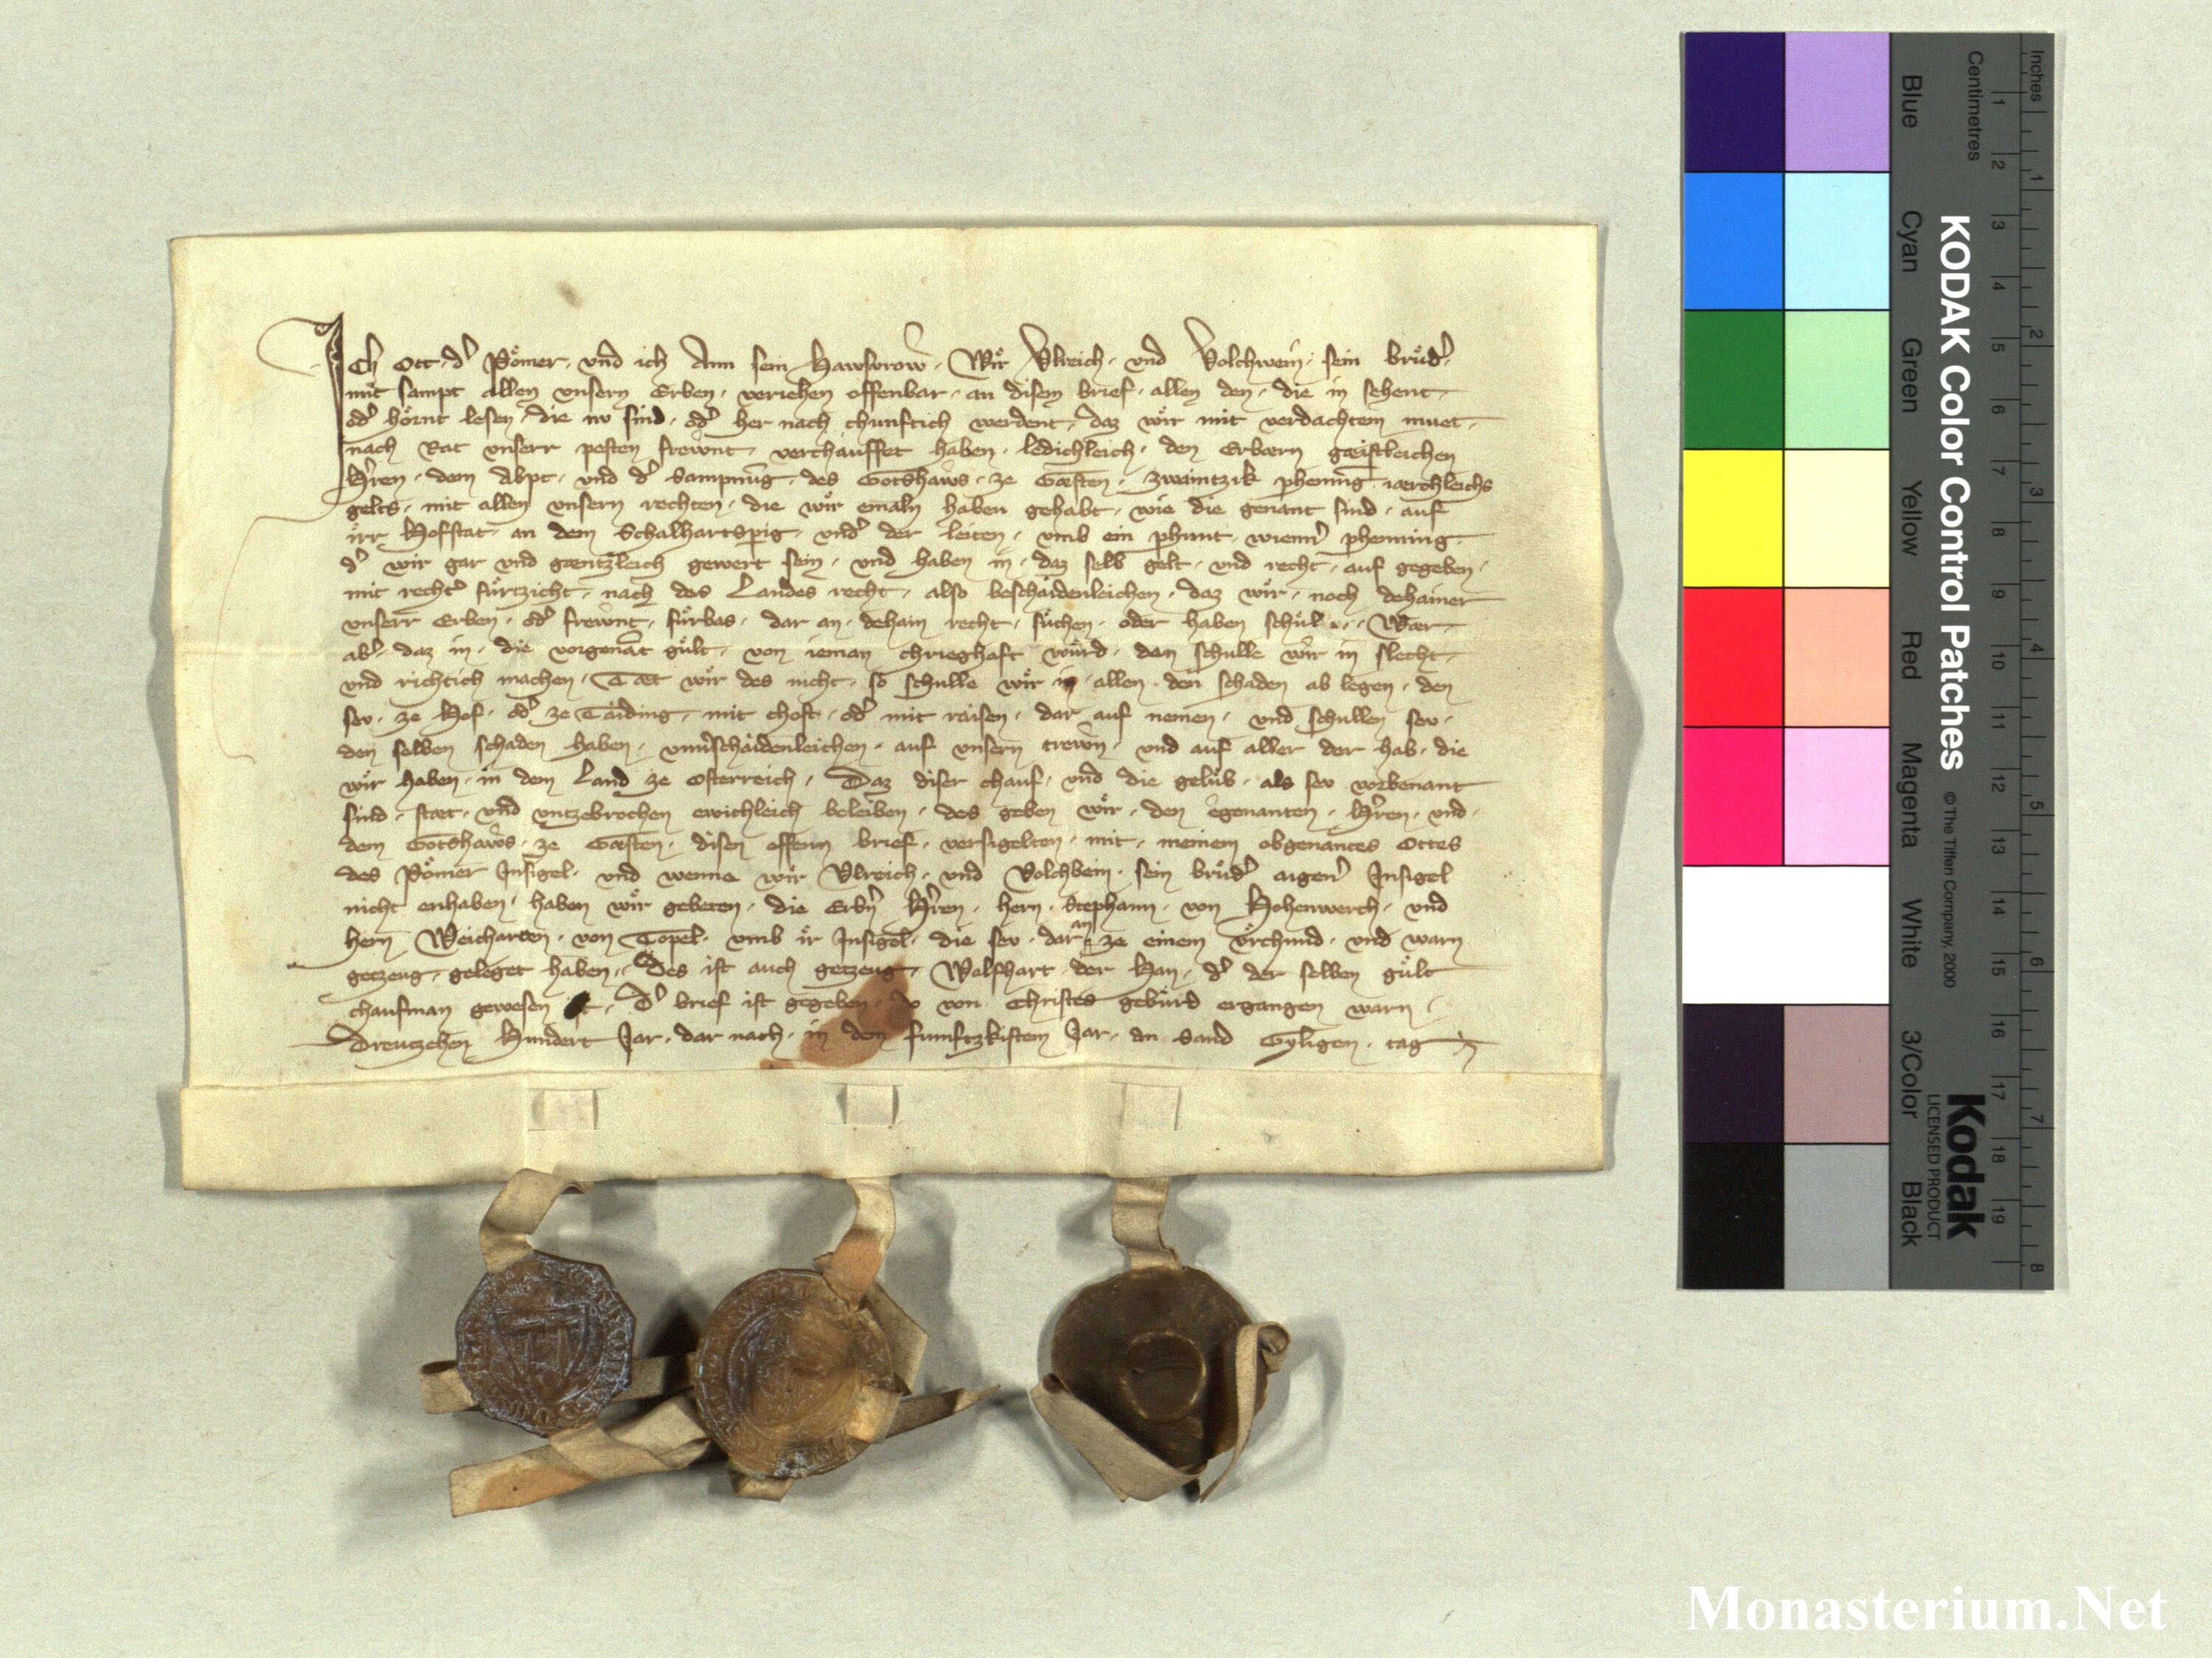 Ich Ott d' Pömer · vnd ich Ann sein Hawsvrow · Wir Vlreich · vnd Volchwein · sein brüd' ·
mit sampt allen vnsern Erben · veriehen offenbar · an disem brief · allen den · die in sehent ·
od' hörnt lesen · die nv sind · od' her nach chunftich werdent · daz wir mit verdachtem muet ·
nach Rat vnserr pesten frewnt · verchauffet haben · ledichleich · den Erbærn gæistleichen
H'ren · dem Abpt · vnd d' Sampnūg · des Gotshaws · ze Gæsten · zwaintzik phennīg iærchleichs
gelts · mit allen vnsern rechten · die wir emaln haben gehabt · wie die genant sind · auf
irr Hofstat · an dem Schalhartsperig · vnd' der leiten · vmb ein phunt · wienn' phenning ·
d' wir gar vnd gæntzleich gewert sein · vnd haben in · daz selb gelt · vnd recht · auf gegeben ·
mit recht' fürtzicht · nach des Landes recht · also beschaidenleichen · daz wir · noch dehainer
vnserr Erben · od' frewnt · fürbas · dar an · dehain recht · süchen · oder haben · Wær
ab' · daz in · die vorgenāt gült · von ieman chrieghaft würd · den schulle wir in slecht ·
vnd richtich machen · Tæt wir des nicht · so schulle wir in allen den schaden ab legen · den
sev · ze Hof · od' ze Taiding · mit chost · od' mit raisen · dar auf nemen · vnd schullen sev ·
den selben schaden haben · vnu'schaidenleichen · auf vnsern trewn · vnd auf aller der hab · die
wir haben · in dem Land ze Osterreich · Daz diser chauf · vnd die gelüb · als sev vorbenant
sind · stæt · vnd vntzebrochen ewichleich beleiben · des geben wir · den egenanten · H'ren · vnd ·
dem Gotshaws · ze Gæsten · disen offenn brief · versigelten · mit · meinem obgenantes Ottes
des Pömer Insigel · vnd wenne wir Vlreich · vnd Volchbein · sein brüd' aigen' Insigel
nicht enhaben · haben wir gebeten · die Erb'n H'ren · hern · Stephann · von Hohenwerch · vnd
hern Weicharten · von Topel · vmb ir Insigel · die sev · dar an ze einem vrchund · vnd warn
getzeug · geleget haben · Des ist auch getzeug · Wolfhart der Han · d' der selben gült
chaufman gewesen ist · D' brief ist gegeben · do von Christes gebürd ergangen warn ·
Dreutzehen Hundert Jar · dar nach · in dem fumftzkistem Jar · An Sand Gyligen · tag
Inches
Centimetres
1 2 3 4 5 6 7 8 9 10 11 12 13 14 15 16 17 18 19
1 2 3 4 5 6 7 8
KODAK Color Control Patches
© The Tiffen Company, 2000
Kodak
LICENSED PRODUCT
Blue
Cyan
Green
Yellow
Red
Magenta
White
3/Color
Black
Monasterium.Net